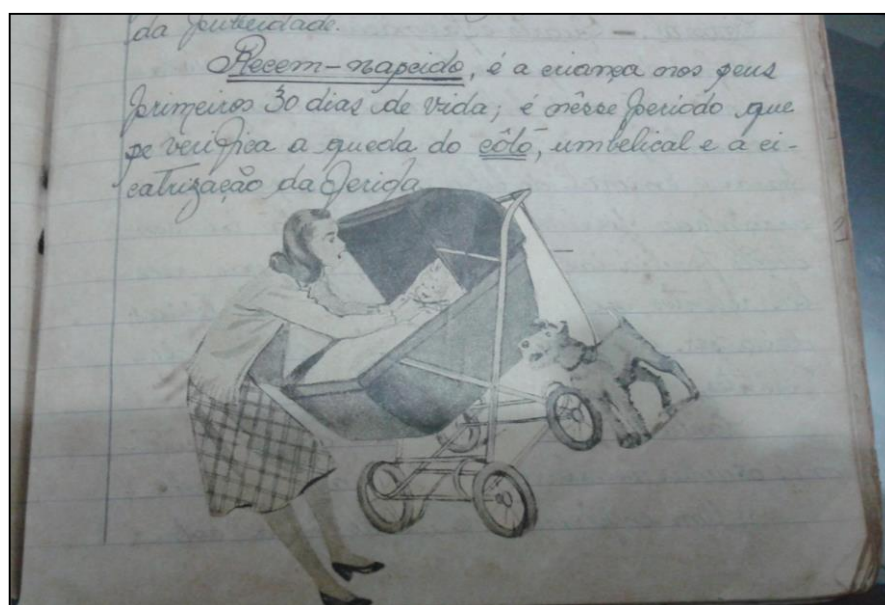 da puberdade.
Recem-nascido, é a criança nos seus
primeiros 30 dias de vida; é nêsse periodo que
se verifica a queda do côtô, umbelical e a ci-
catrização da ferida